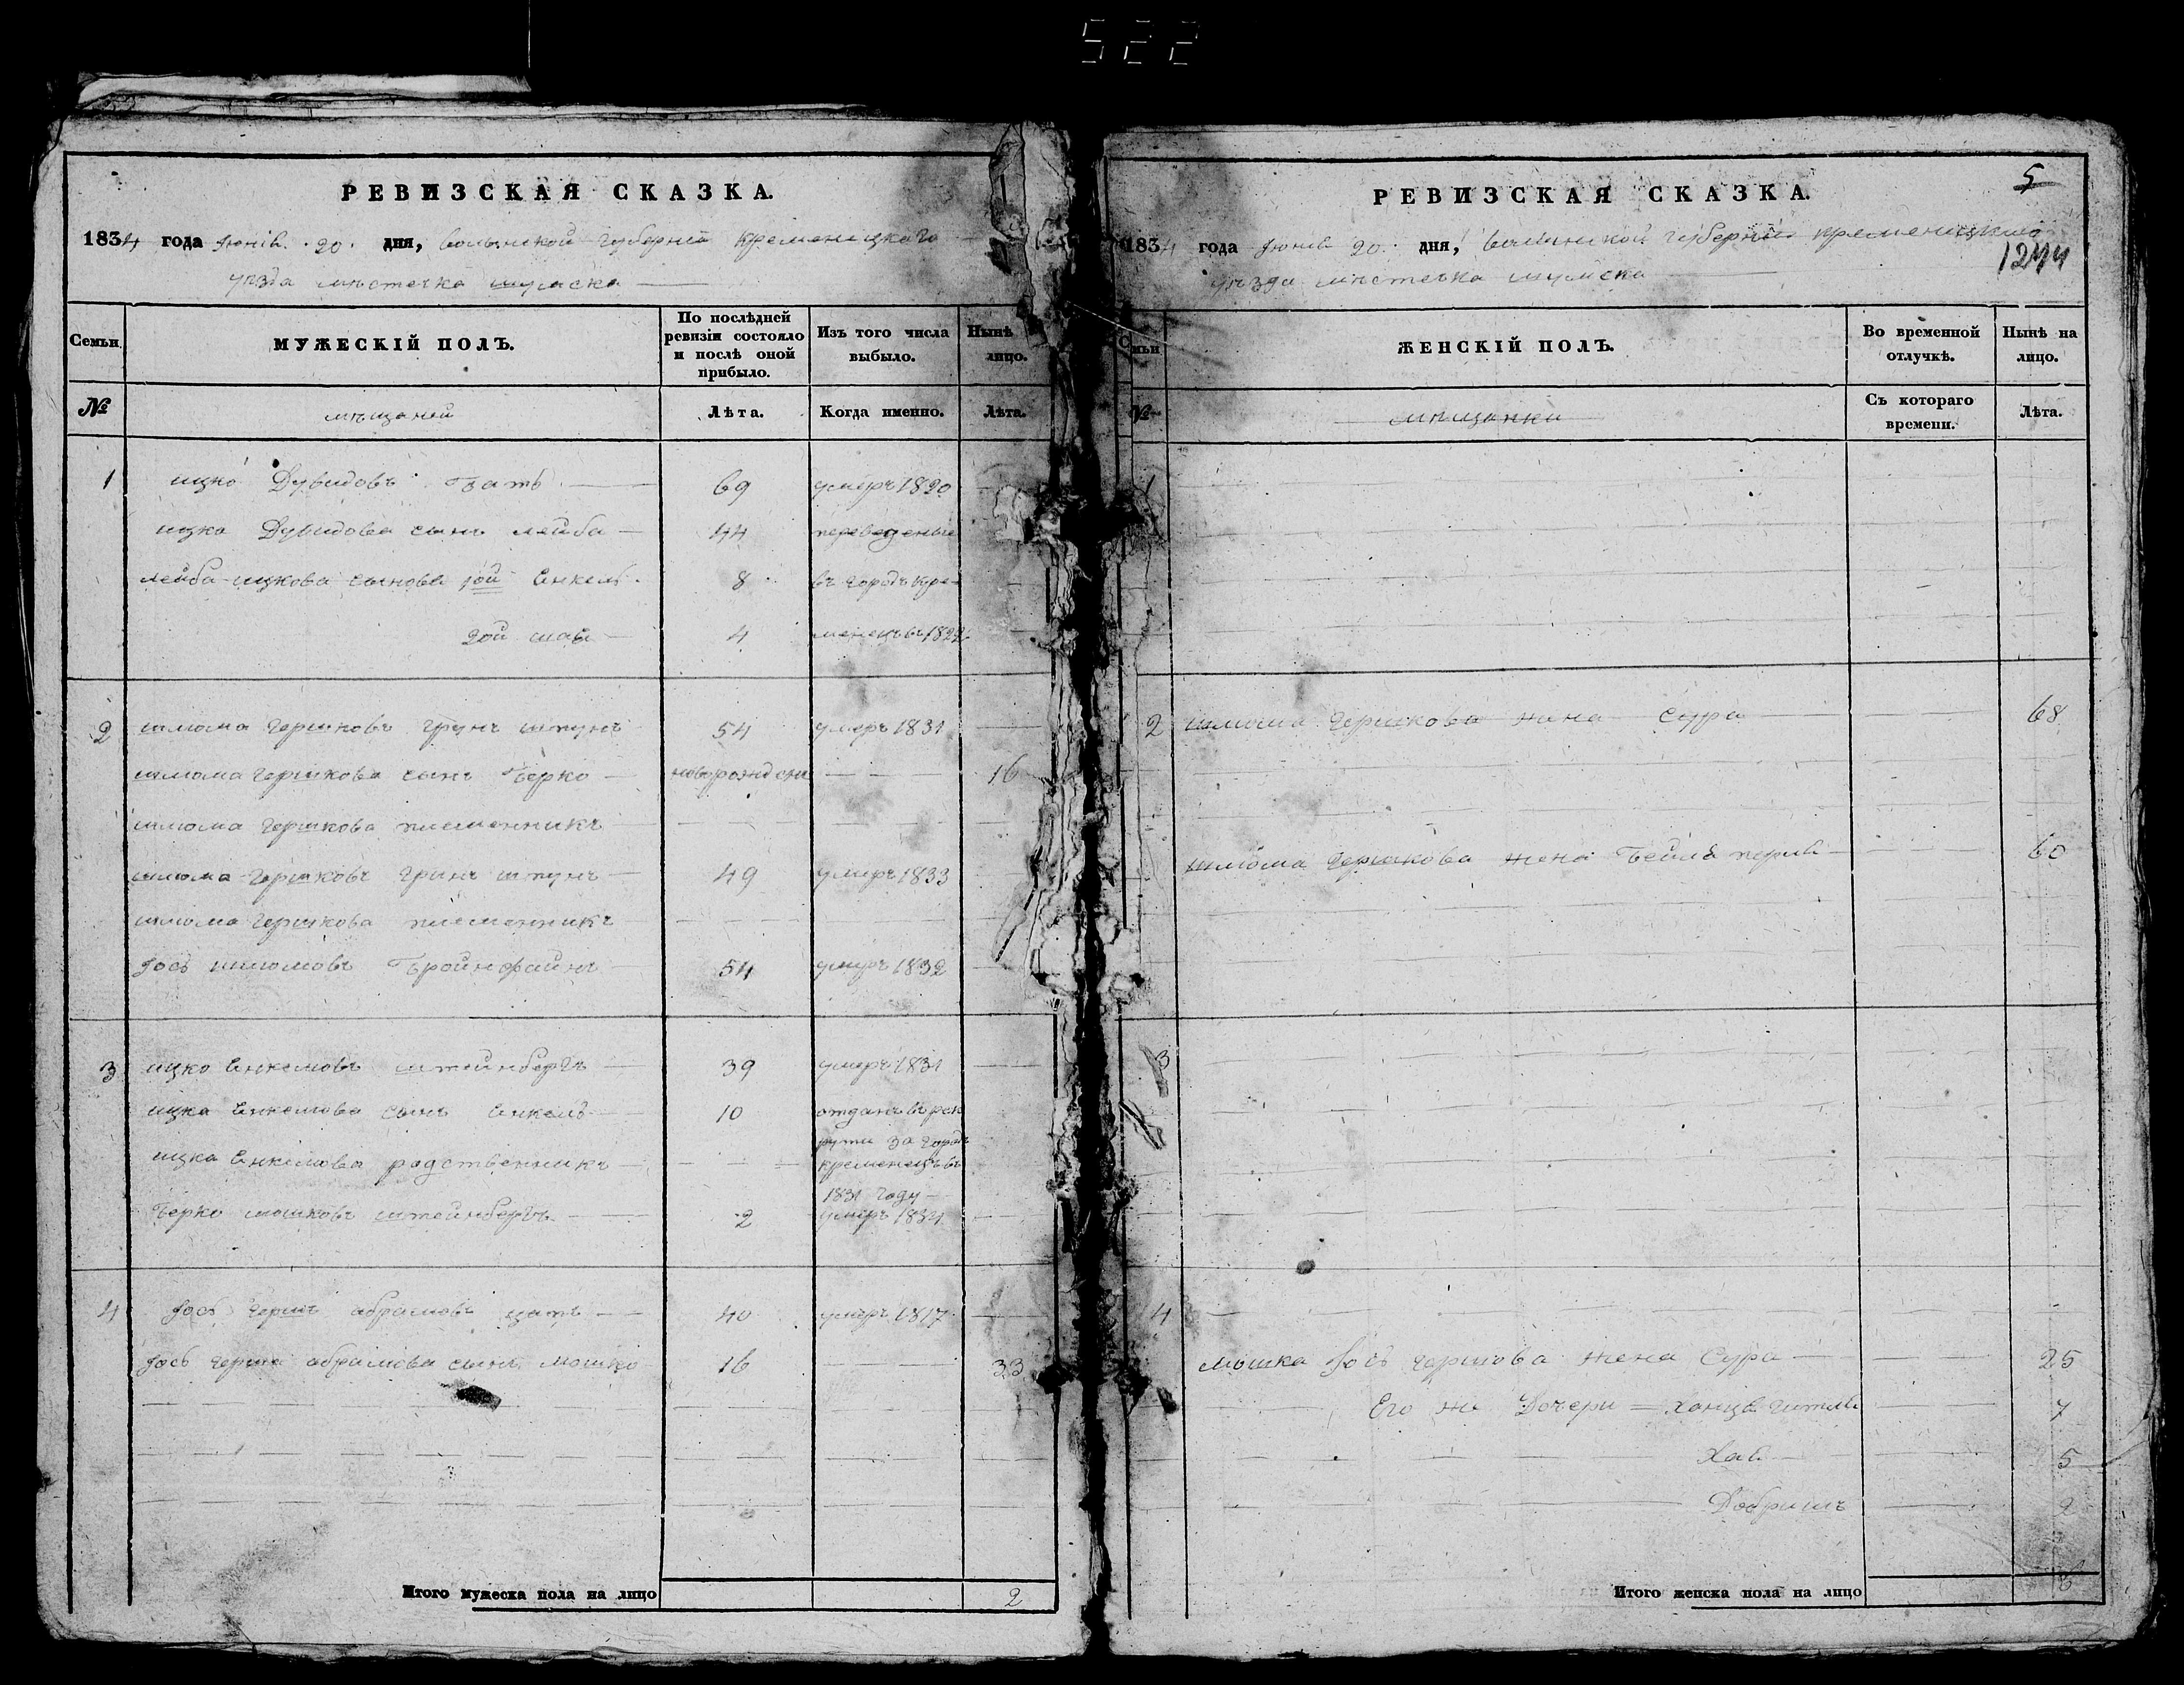 522
РЕВИЗСКАЯ СКАЗКА.
1834 года Июня 20 дня, Волынской Губернии Кременецкаго
уѣзда мѣстечка Шумска
Семьи
МУЖЕСКІЙ ПОЛЪ.
По послѣдней ревизіи состояло и послѣ оной прибыло.
Изъ того числа выбыло.
Нынѣ лицо.
№
мѣщаней
Лѣта.
Когда именно.
Лѣта.
1 ицко Дувидовъ 69 умеръ 1820
ицка Дувидова сынъ лейба 44 переведеные
лейба ицкова сынове 1ой Енкель 8 въ городъ Кре-
2ой 4 менецъ въ 1822
2 шлиома Гершковъ Грун штунъ 54 умеръ 1831
шлиома Гершкова сынъ Берко новорожденъ 16
шлиома Гершкова племенникъ
шлиома Гершковъ Грин штунъ 49 умеръ 1833
шлиома Гершкова племенникъ
Іось шлиомовъ Бройнфайнъ 54 умеръ 1832
3 ицко Енкелювъ штейнбергъ 39 умеръ 1831
ицка Енкелюва сынъ Енкель 10 отданъ въ рек
руты за городъ
ицка Енкелюва родственникъ кременецъ въ
1831 году
Берко мошковъ штейнбергъ 2 умеръ 1834
4 Іось Гершъ абрамовъ цатъ 40 умеръ 1817
Іось Герша абрамова сынъ мошко 16 33
Итого мужеска пола на лицо 2
5
РЕВИЗСКАЯ СКАЗКА.
1834 года Июня 20 дня, Волынской Губернии Кременецкаго
1244
уѣзда мѣстечка Шумска
Семьи
ЖЕНСКІЙ ПОЛЪ.
Во временной отлучкѣ.
Нынѣ на лицо.
№
мѣщанки
Съ котораго времени.
Лѣта.
2 шлиома Гершкова жена Сура 68
шлиома Гершкова жена Бейля перля 60
3
4
мошка Іось Гершова жена Сура 25
Его же Дочери Ханця Гитля 7
Хая 5
Добришъ 2
Итого женска пола на лицо